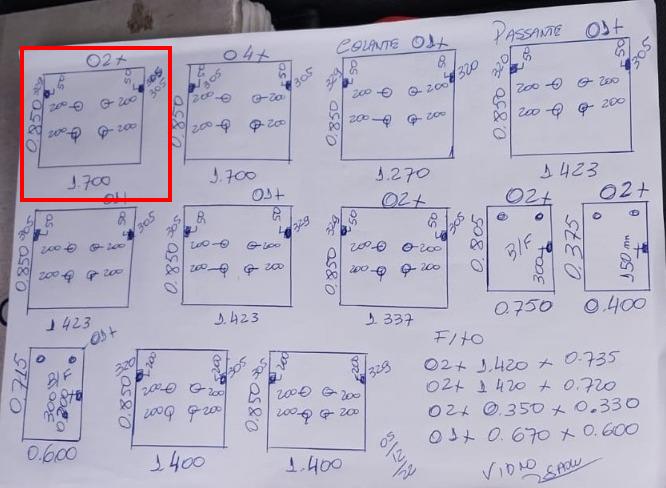 02x
329 50 50 305
305
0.850
200 200
200 200
1.700
04x
50 305 50 305
0.850
200 200
200 200
1.700
COLANTE 01x
329 50 50 320
0.850
200 200
200 200
1.270
PASSANTE 01x
320 50 50 305
0.850
200 200
200 200
1.423
01x
305 50 50 305
0.850
200 200
200 200
1.423
01x
305 50 50 329
0.850
200 200
200 200
1.423
02x
329 50 50 305
0.850
200 200
200 200
1.337
02x
0.805
B/F
300
0.750
02x
0.375
150 mm
0.400
01x
0.715
300
0.600
320 200 305
0.850
200 200
200 200
1.400
305 200 200 329
0.850
200 200
200 200
1.400
FIXO
02x 1.420 x 0.735
02x 1.420 x 0.720
02x 0.350 x 0.330
01x 0.670 x 0.600
05/12/22
VIDRO